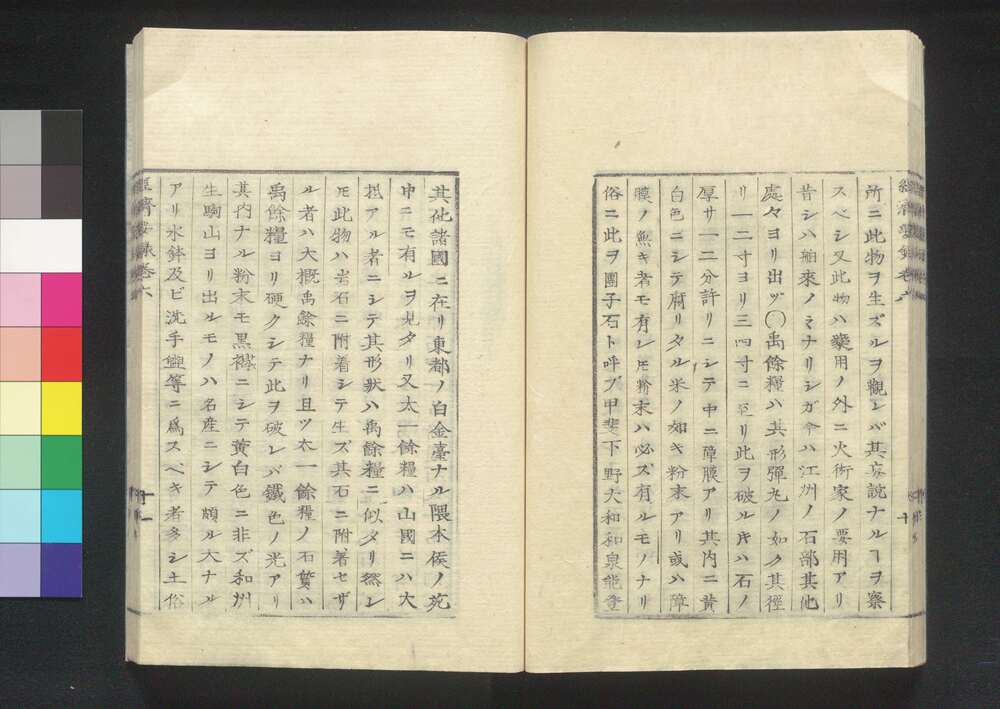 所ニ此物ヲ生ズルヲ觀レバ其妄說ナルヿヲ察
スベシ又此物ハ藥用ノ外ニ火術家ノ要用アリ
昔シハ舶來ノミナリシガ今ハ江州ノ石部其他
處々ヨリ出ヅ〇禹餘糧ハ其形彈丸ノ如ク其徑
リ一二寸ヨリ三四寸ニ至リ此ヲ破ル𪜈ハ石ノ
厚サ一二分許リニシテ中ニ障膜アリ其内ニ黄
白色ニシテ腐リタル米ノ如キ粉末アリ或ハ障
膜ノ無キ者モ有レ𪜈粉末ハ必ズ有ルモノナリ
俗ニ此ヲ團子石ト呼ブ甲斐下野大和和泉能登
十
其他諸國ニ在リ東都ノ白金臺ナル隈本侯ノ苑
中ニモ有ルヲ見タリ又太一餘糧ハ山國ニハ大
抵アル者ニシテ其形狀ハ禹餘糧ニ似タリ然レ
𪜈此物ハ岩石ニ附着シテ生ズ其石ニ附着セザ
ル者ハ大概禹餘糧ナリ且ツ太一餘糧ノ石質ハ
禹餘糧ヨリ硬クシテ此ヲ破レバ鐵色ノ光アリ
其内ナル粉末モ黒褐ニシテ黄白色ニ非ズ和州
生駒山ヨリ出ルモノハ名産ニシテ頗ル大ナル
アリ水鉢及ビ洗手盥等ニ爲スベキ者多シ土俗
十一